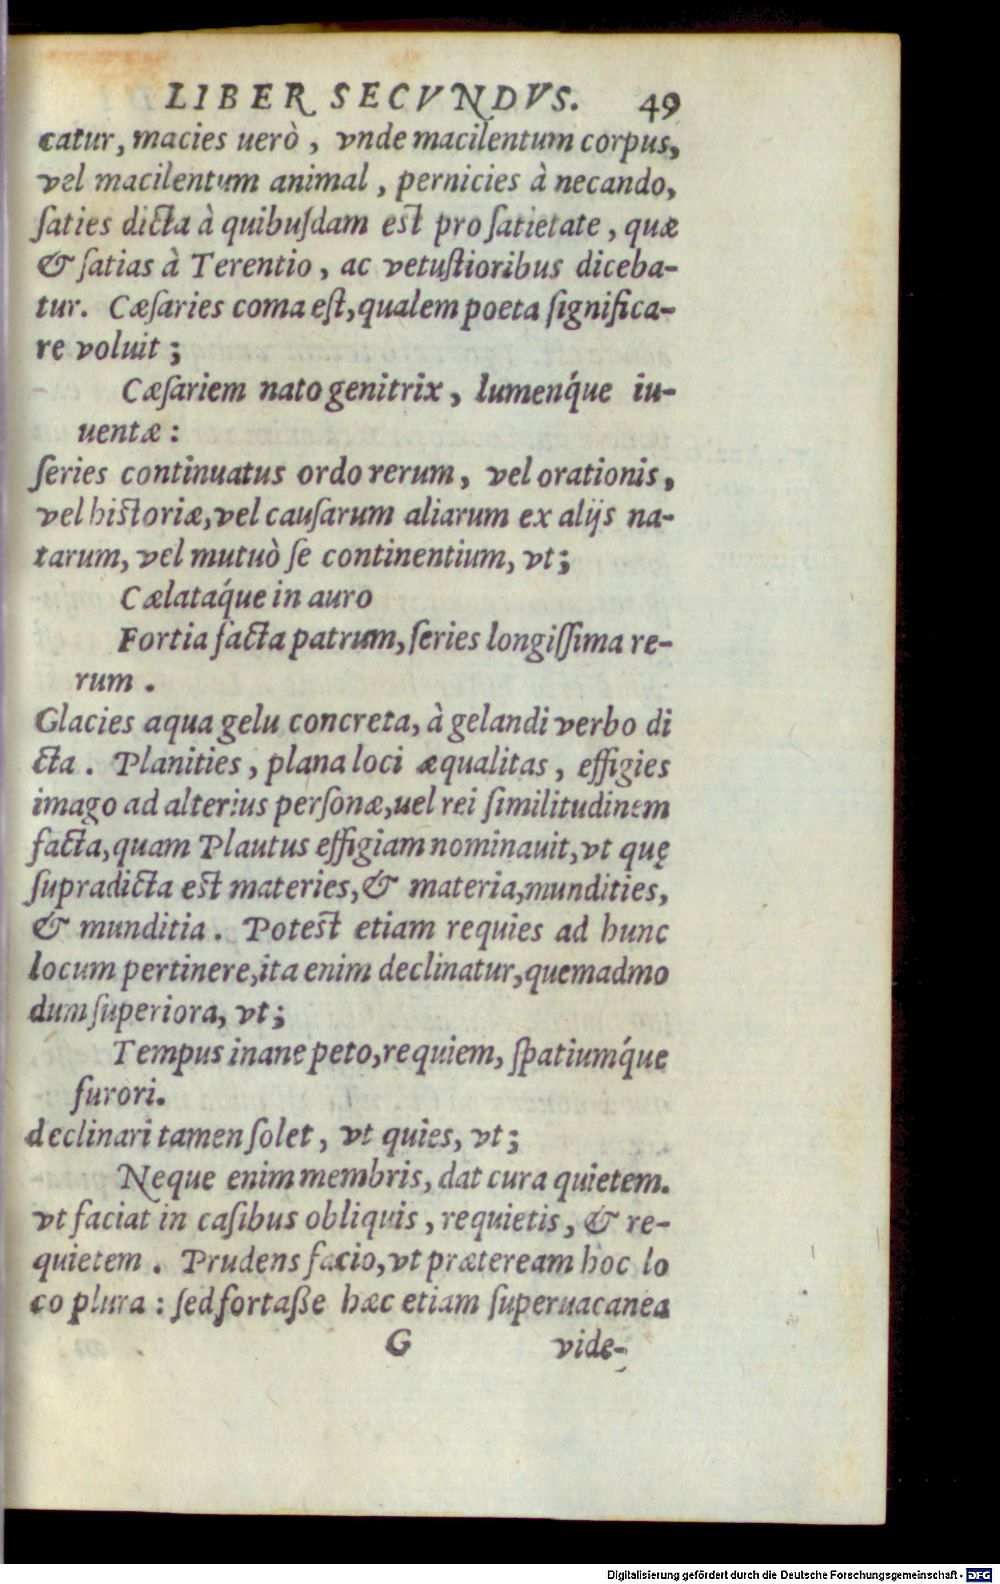 LIBER SECVNDVS. 49
catur, macies uerò, vnde macilentum corpus,
vel macilentum animal, pernicies à necando,
ſaties dicta à quibuſdam est pro ſatietate, quæ
& ſatias à Terentio, ac vetuſtioribus diceba-
tur. Cæſaries coma eſt, qualem poeta ſignifica-
re voluit;
Cæſariem nato genitrix, lumenq́ue iu-
uentæ:
ſeries continuatus ordo rerum, vel orationis,
vel historiæ, vel cauſarum aliarum ex alijs na-
tarum, vel mutuò ſe continentium, vt;
Cælataq́ue in auro
Fortia facta patrum, ſeries longiſſima re-
rum.
Glacies aqua gelu concreta, à gelandi verbo di
cta. Planities, plana loci æqualitas, effigies
imago ad alterius perſonæ, uel rei ſimilitudinem
facta, quam Plautus effigiam nominauit, vt quę
ſupradicta est materies, & materia, mundities,
& munditia. Potest etiam requies ad hunc
locum pertinere, ita enim declinatur, quemadmo
dum ſuperiora, vt;
Tempus inane peto, requiem, ſpatiumq́ue
furori.
declinari tamen ſolet, vt quies, vt;
Neque enim membris, dat cura quietem.
vt faciat in caſibus obliquis, requietis, & re-
quietem. Prudens facio, vt præteream hoc lo
co plura: ſed fortaße hæc etiam ſuperuacanea
G vide-
Digitalisierung gefördert durch die Deutsche Forschungsgemeinschaft - DFG